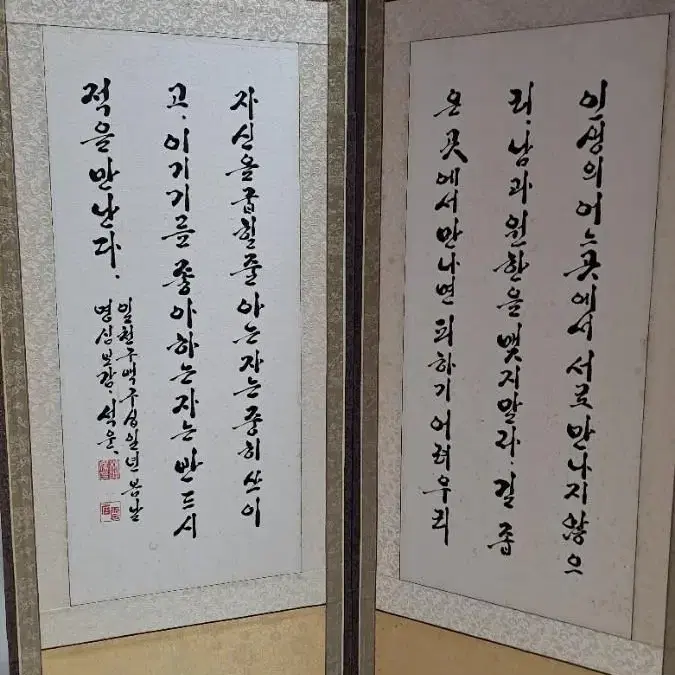 인생의 어느 곳에서 서로 만나지 않으
리. 남과 원한을 맺지말라. 길 좁
은 곳에서 만나면 피하기 어려우리
자신을 굽힐줄 아는자는 중히 쓰이
고. 이기기를 좋아하는자는 반드시
적을 만난다.
일천구백구십일년 봄날
명심보감. 석운.